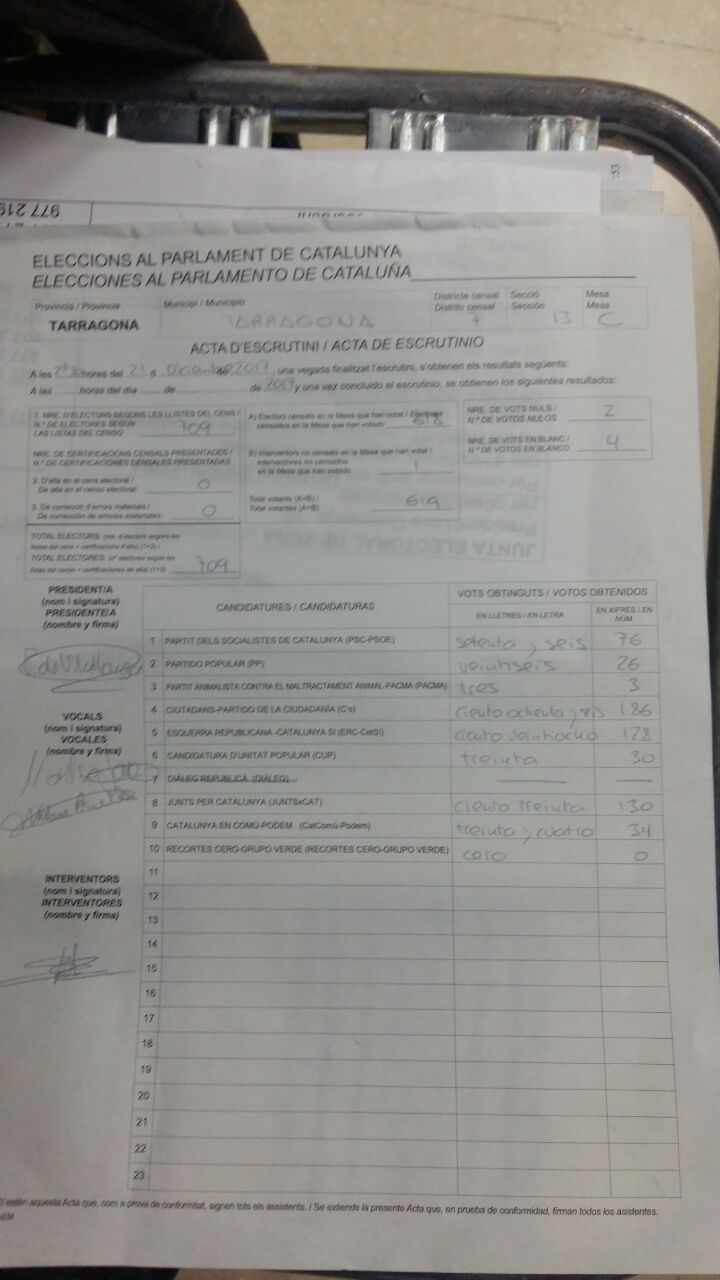 977 219
ELECCIONS AL PARLAMENT DE CATALUNYA
ELECCIONES AL PARLAMENTO DE CATALUÑA
Província / Provincia
Municipi / Municipio
Districte censal
Distrito censal
Secció
Sección
Mesa
Mesa
TARRAGONA
TARRAGONA
7
13
C
ACTA D'ESCRUTINI / ACTA DE ESCRUTINIO
A les hores del 21 d Diciembre de 2017, una vegada finalitzat l'escrutini, s'obtenen els resultats següents:
A las horas del día de de 2017 y una vez concluido el escrutinio, se obtienen los siguientes resultados:
1. NRE. D'ELECTORS SEGONS LES LLISTES DEL CENS /
N.º DE ELECTORES SEGÚN
LAS LISTAS DEL CENSO 709
NRE. DE CERTIFICACIONS CENSALS PRESENTADES /
N.º DE CERTIFICACIONES CENSALES PRESENTADAS
2. D'alta en el cens electoral /
De alta en el censo electoral: 0
3. De correcció d'errors materials /
De corrección de errores materiales: 0
TOTAL ELECTORS: (nre. d'electors segons les
llistes del cens + certificacions d'alta) (1+2) /
TOTAL ELECTORES: (nº electores según las
listas del censo + certificaciones de alta) (1+2) 709
A) Electors censats en la Mesa que han votat / Electores
censados en la Mesa que han votado 618
B) Interventors no censats en la Mesa que han votat /
Interventores no censados
en la Mesa que han votado 1
Total votants (A+B) /
Total votantes (A+B) 619
NRE. DE VOTS NULS /
N.º DE VOTOS NULOS 2
NRE. DE VOTS EN BLANC /
N.º DE VOTOS EN BLANCO 4
JUNTA ELECTORAL DE ZONA
PRESIDENT/A
(nom i signatura)
PRESIDENTE/A
(nombre y firma)
VOCALS
(nom i signatura)
VOCALES
(nombre y firma)
INTERVENTORS
(nom i signatura)
INTERVENTORES
(nombre y firma)
CANDIDATURES / CANDIDATURAS
VOTS OBTINGUTS / VOTOS OBTENIDOS
EN LLETRES / EN LETRA
EN XIFRES / EN NÚM.
1 PARTIT DELS SOCIALISTES DE CATALUNYA (PSC-PSOE) setenta y seis 76
2 PARTIDO POPULAR (PP) veintiseis 26
3 PARTIT ANIMALISTA CONTRA EL MALTRACTAMENT ANIMAL-PACMA (PACMA) tres 3
4 CIUTADANS-PARTIDO DE LA CIUDADANÍA (C's) ciento ochenta y seis 186
5 ESQUERRA REPUBLICANA -CATALUNYA SÍ (ERC-CatSí) ciento veintiocho 128
6 CANDIDATURA D'UNITAT POPULAR (CUP) treinta 30
7 DIÀLEG REPUBLICÀ (DIÀLEG)
8 JUNTS PER CATALUNYA (JUNTSxCAT) ciento treinta 130
9 CATALUNYA EN COMÚ-PODEM (CatComú-Podem) treinta y cuatro 34
10 RECORTES CERO-GRUPO VERDE (RECORTES CERO-GRUPO VERDE) cero 0
11
12
13
14
15
16
17
18
19
20
21
22
23
S'estén aquesta Acta que, com a prova de conformitat, signen tots els assistents. / Se extiende la presente Acta que, en prueba de conformidad, firman todos los asistentes.